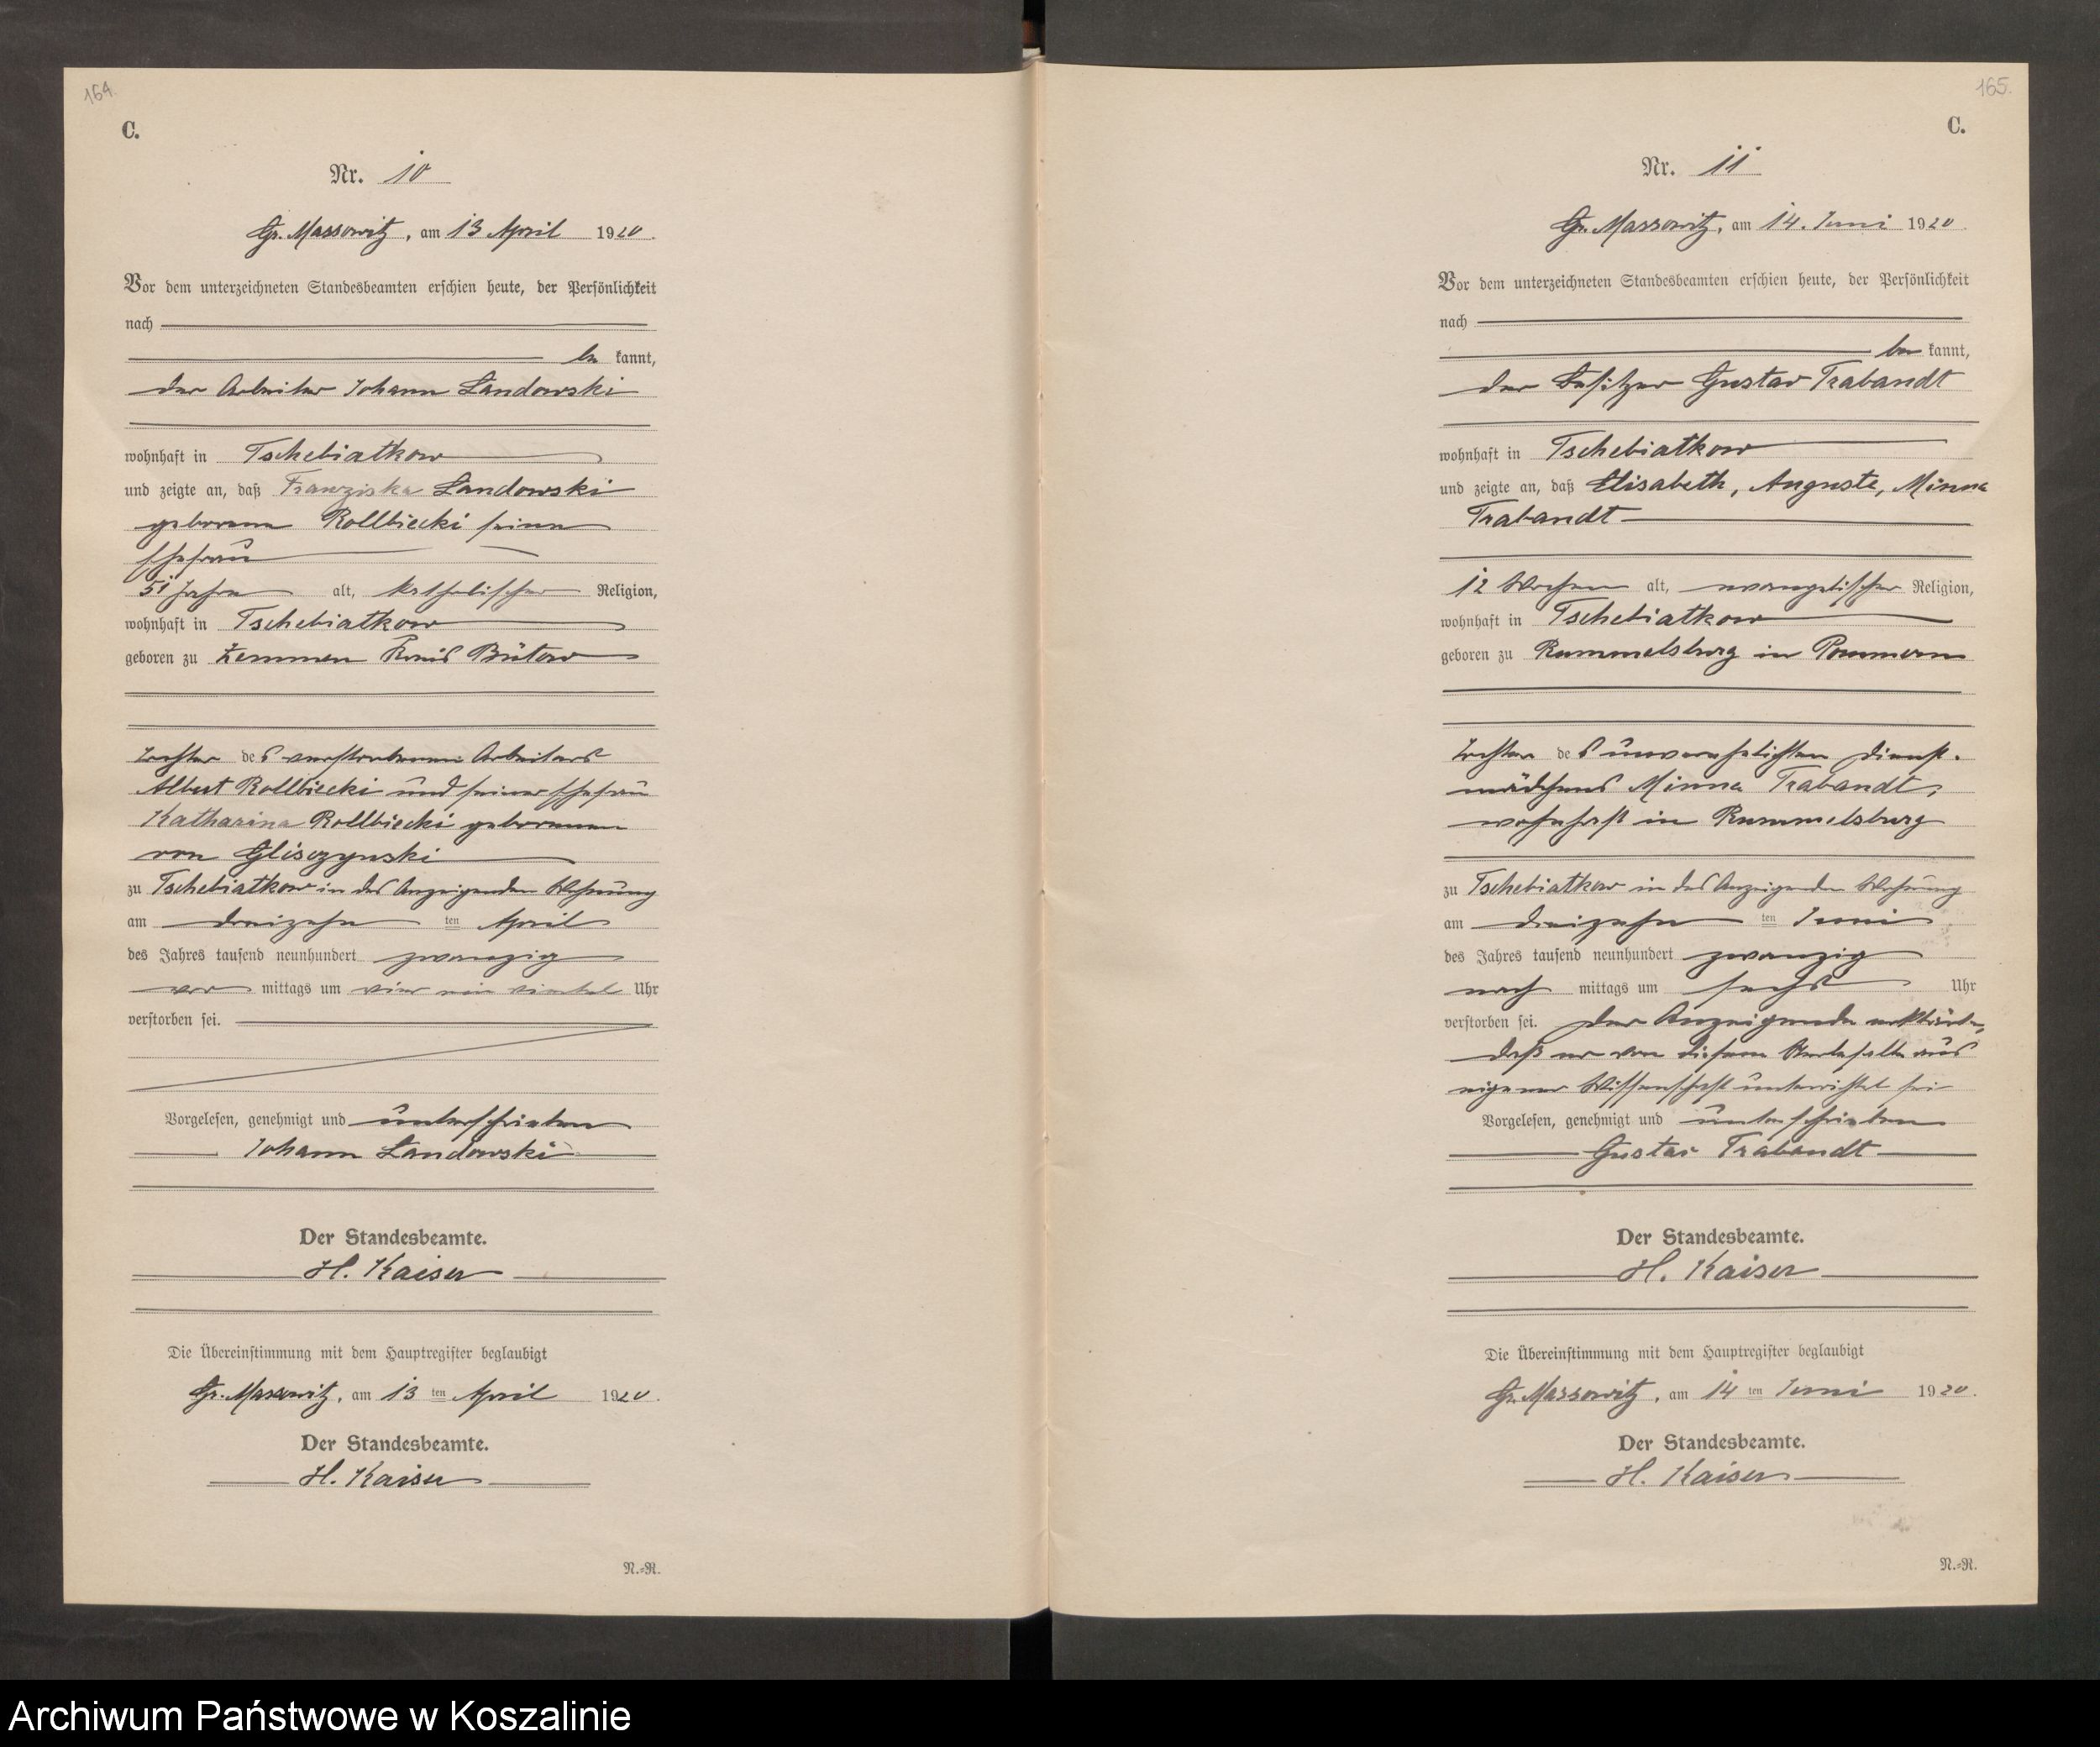 164.
C.
Nr. 10
Gr. Massowitz, am 13 April 1920.
Vor dem unterzeichneten Standesbeamten erschien heute, der Persönlichkeit
nach
be kannt,
der Arbeiter Johann Landowski
wohnhaft in Tschebiatkow
und zeigte an, daß Franziska Landowski
geborene Rollbiecki seine
Ehefrau
51 Jahre alt, katholischer Religion,
wohnhaft in Tschebiatkow
geboren zu Zemmen Kreis Bütow
Tochter des verstorbenen Arbeiters
Albert Rollbiecki und seiner Ehefrau
Katharina Rollbiecki geborenen
von Glisczynski
zu Tschebiatkow in des Anzeigenden Wohnung
am dreizehn ten April
des Jahres tausend neunhundert zwanzig
vor mittags um vier ein viertel Uhr
verstorben sei.
Vorgelesen, genehmigt und unterschrieben
Johann Landowski
Der Standesbeamte.
H. Kaiser
Die Übereinstimmung mit dem Hauptregister beglaubigt
Gr. Massowitz, am 13 ten April 1920.
Der Standesbeamte.
H. Kaiser
N.=R.
165.
C.
Nr. 11
Gr. Massowitz, am 14. Juni 1920.
Vor dem unterzeichneten Standesbeamten erschien heute, der Persönlichkeit
nach
be kannt,
der Besitzer Gustav Trabandt
wohnhaft in Tschebiatkow
und zeigte an, daß Elisabeth, Auguste, Minna
Trabandt
12 Wochen alt, evangelischer Religion,
wohnhaft in Tschebiatkow
geboren zu Rummelsburg in Pommern
Tochter des unverehelichten Dienst-
mädchens Minna Trabandt,
wohnhaft in Rummelsburg
zu Tschebiatkow in des Anzeigenden Wohnung
am dreizehn ten Juni
des Jahres tausend neunhundert zwanzig
nach mittags um sechs Uhr
verstorben sei. Der Anzeigende erklärte,
daß er von diesem Sterbefalle aus
eigener Wissenschaft unterrichtet sei
Vorgelesen, genehmigt und unterschrieben
Gustav Trabandt
Der Standesbeamte.
H. Kaiser
Die Übereinstimmung mit dem Hauptregister beglaubigt
Gr. Massowitz, am 14 ten Juni 1920.
Der Standesbeamte.
H. Kaiser
N.=R.
Archiwum Państwowe w Koszalinie